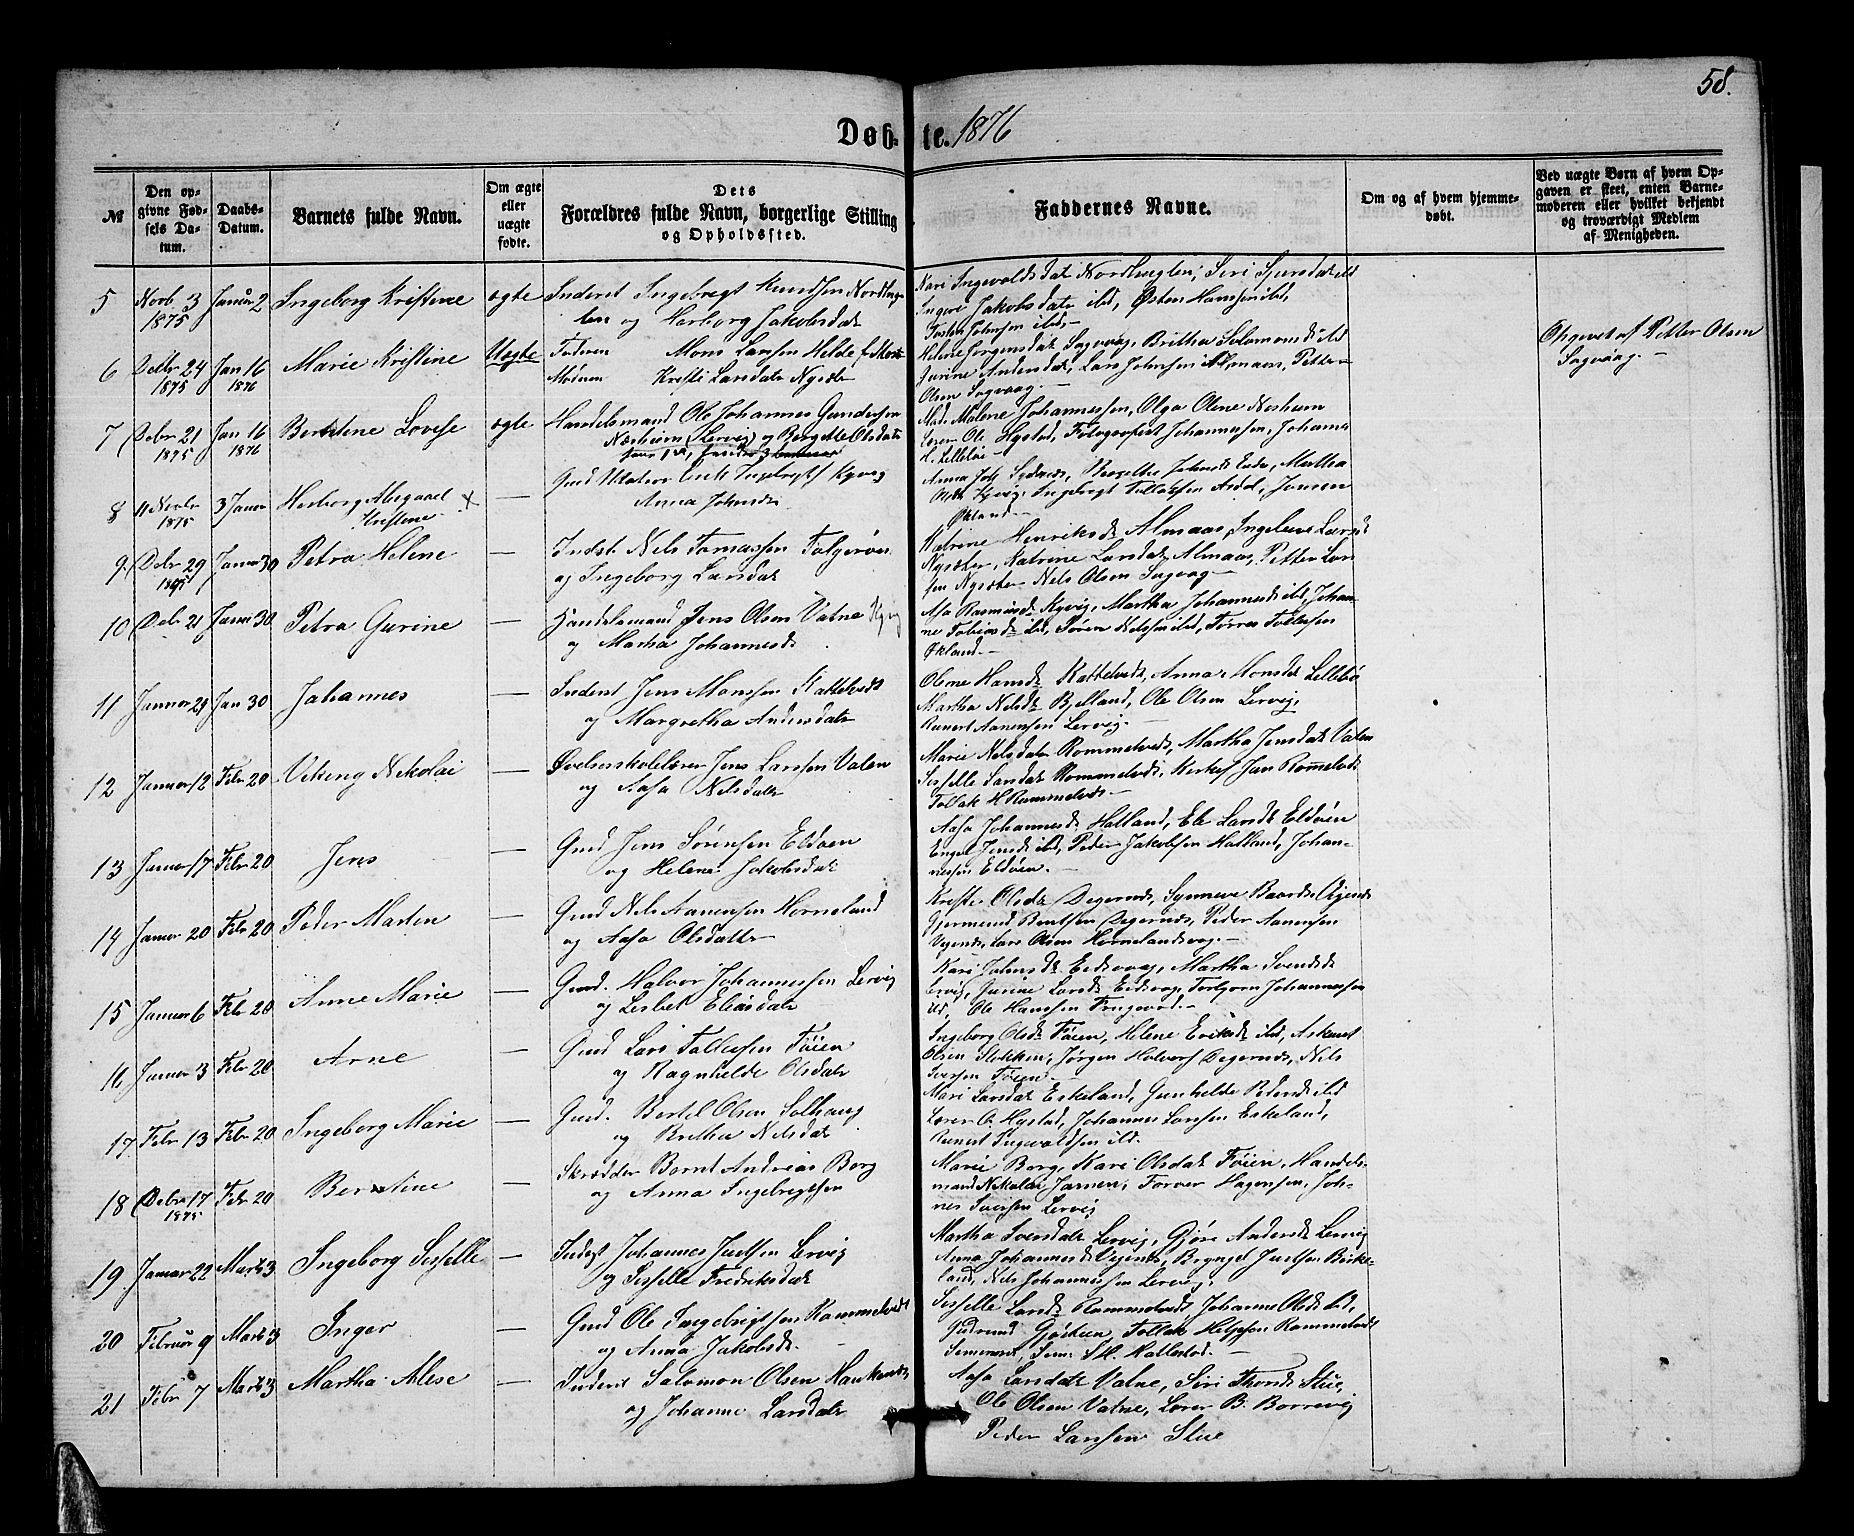 58.
Døb- te. 1876
№
Den op-
givne Fød-
sels Da-
tum.
Daabs-
Datum.
Barnets fulde Navn.
Om ægte
eller
uægte
fødte.
Dets
Forældres fulde Navn, borgerlige Stilling
og Opholdssted.
Faddernes Navne.
Om og af hvem hjemme-
døbt.
Ved uægte Børn af hvem Op-
gaven er skeet, enten Barne-
moderen eller hvilket bekjendt
og troværdigt Medlem
af Menigheden.
5 Novb 3 Januar 2 Ingeborg Kristine ægte Inderst Ingebregt Knudsen Nordhug-
1875 len og Herborg Jakobsdat
Kari Ingevaldsdat Nordhuglen, Siri Sjursdat ibd
Ingeri Jakobsdatr ibd, Østen Hansen ibd,
Tosten Johnsen ibd
6 Decbr 24 Jan 16 Marie Kristine Uægte Faderen Mons Larsen Helde
1875 1876 Moderen Kristi Larsdatr Nysæter
Helene Jørgensdat Sagvaag, Britha Solomonsd ibd
Gurine Andersdat, Lars Johnsen Almaas, Petter
Olsen Sagvaag
Opgivet af Petter Olsen
Sagvaag.
7 Decbr 21 Jan 16 Berntine Lovise ægte Handelsmand Ole Johannes Gundersen
1875 1876 Næsheim (Lervig) og Bergitte Olsdatr
Mad. Malene Johannessen, Olga Olene Nesheim
Lærer Ole Hystad, Fotografist Johannessen, Johannes
H. Lillebø
8 11 Novbr 3 Januar Herborg Abegaael — Gmd Erik Ingebregts Kyvig
1875 Kristine Anna Johnsdr
Økland
9 Decbr 29 Januar 30 Petra Helene — Inderst Nels Tomassen Folgerøen
1875 og Ingeborg Larsdat
Katrine Henriksd Almaas, Ingeleve Larsd
Nysæter, Katrine Larsdat Almaas, Petter Lar-
sen Nysæter Nels Olsen Sagvaag
10 Decbr 21 Januar 30 Petra Gurine — Handelsmand Jens Olsen Vatne Kyvig
og Martha Johannesd
Aasa Rasmusd Kyvig, Martha Johannesd ibd, Johan-
ne Tobiasd ibd, Søren Nelsen ibd, Torres Tollefsen
Økland
11 Januar 29 Jan 30 Johannes — Inderst Jens Monsen Kattelvedt
og Margretha Andersdatr
Olene Hansdr Kattelvedt, Anna Monsdt Lillebø
Martha Nelsdt Bjelland, Ole Olsen Lervig,
Reinert Aanensen Lervig.
12 Januar 12 Febr 20 Viking Nikolai — Øvelsesskolelærer Jens Larsen Valen
og Aasa Nelsdatr
Marie Nelsdatr Rommelveds, Martha Jensdatr Valen
Sesselle Larsdat Rommelveds, Jan Romelvedt
Tollak H Rummelveds
13 Januar 17 Febr 20 Jens — Gmd Jens Sørensen Eldøen
og Helene Jakobsdat
Aasa Johannesd Halland, Ele Larsdt Eldøen
Engel Jensdt ibd, Peder Jakobsen Halland, Johan-
nessen Eldøen.
14 Januar 20 Febr 20 Peder Marten — Gmd Nels Aanensen Horneland
og Aasa Olsdattr
Kristi Olsdt Digernæs, Synneve Baardsd Vegends
Gjermund Bentsen Digernæs, Peder Aanensen
Vegends, Lars Olsen Hornelandsvag.
15 Januar 6 Febr 20 Anne Marie — Gmd. Halvor Johannessen Lervig
og Lisbet Eliasdatr
Kari Johnsdt Eidsvag, Martha Svendsd
Lervig, Gurine Larsdt Eidsvag, Torbjørn Johannessen
ibd, Ole Hansen
16 Januar 3 Febr 20 Arne — Gmd Lars Tollefsen Føien
og Ragnhilde Olsdatr
Ingeborg Olsdt Føien, Helene Eriksdt ibd, Askend
Olsen Stokken, Jørgen Halvors Digernæs, Nels
Iversen Føien
17 Febr 13 Febr 20 Ingeborg Marie — Gmd. Bertel Olsen Solhaug
og Britha Nelsdat
Mari Larsdat Eskeland, Gunhilde Pedersd ibd
Lærer O. Hystad, Johannes Larsen Eskeland,
Reinert Ingevaldsen ibd.
18 Decbr 17 Febr 20 Berntine — Skrædder Bernt Andreas Borg
1875 og Anna Ingebrigtsen
Marie Borg, Kari Olsdat Føien, Handels-
mand Nikolai Jansen, Torver Hagensen, Joh-
nes Iversen Lervig
19 Januar 22 Marts 3 Ingeborg Sesselle — Inderst Johannes Juelsen Lervig
og Sesselle Fredriksdat
Martha Svensdatr Lervig, Gjøre Andersdt Lervig
Anna Johannesd Vegends, Bryngel Juelsen Birke-
land, Nels Johannessen Lervig.
20 Februar 9 Marts 3 Inger — Gmd Ole Ingebrigtsen Rommelvedt
og Anna Jakobsdt.
Sesselle Larsdt Rommelvedt, Johanne Olsdt ibd,
Gudmund Tollak Helgesen Rommelvedt
21 Febr 7 Marts 3 Martha Alese — Inderst Salomon Olsen Haukenes
og Johanne Larsdatr
Aasa Larsdatr Vatne, Siri Thorsdt Stue,
Ole Olsen Vatne, Lærer B. Borrevig
Peder Larsen Stue